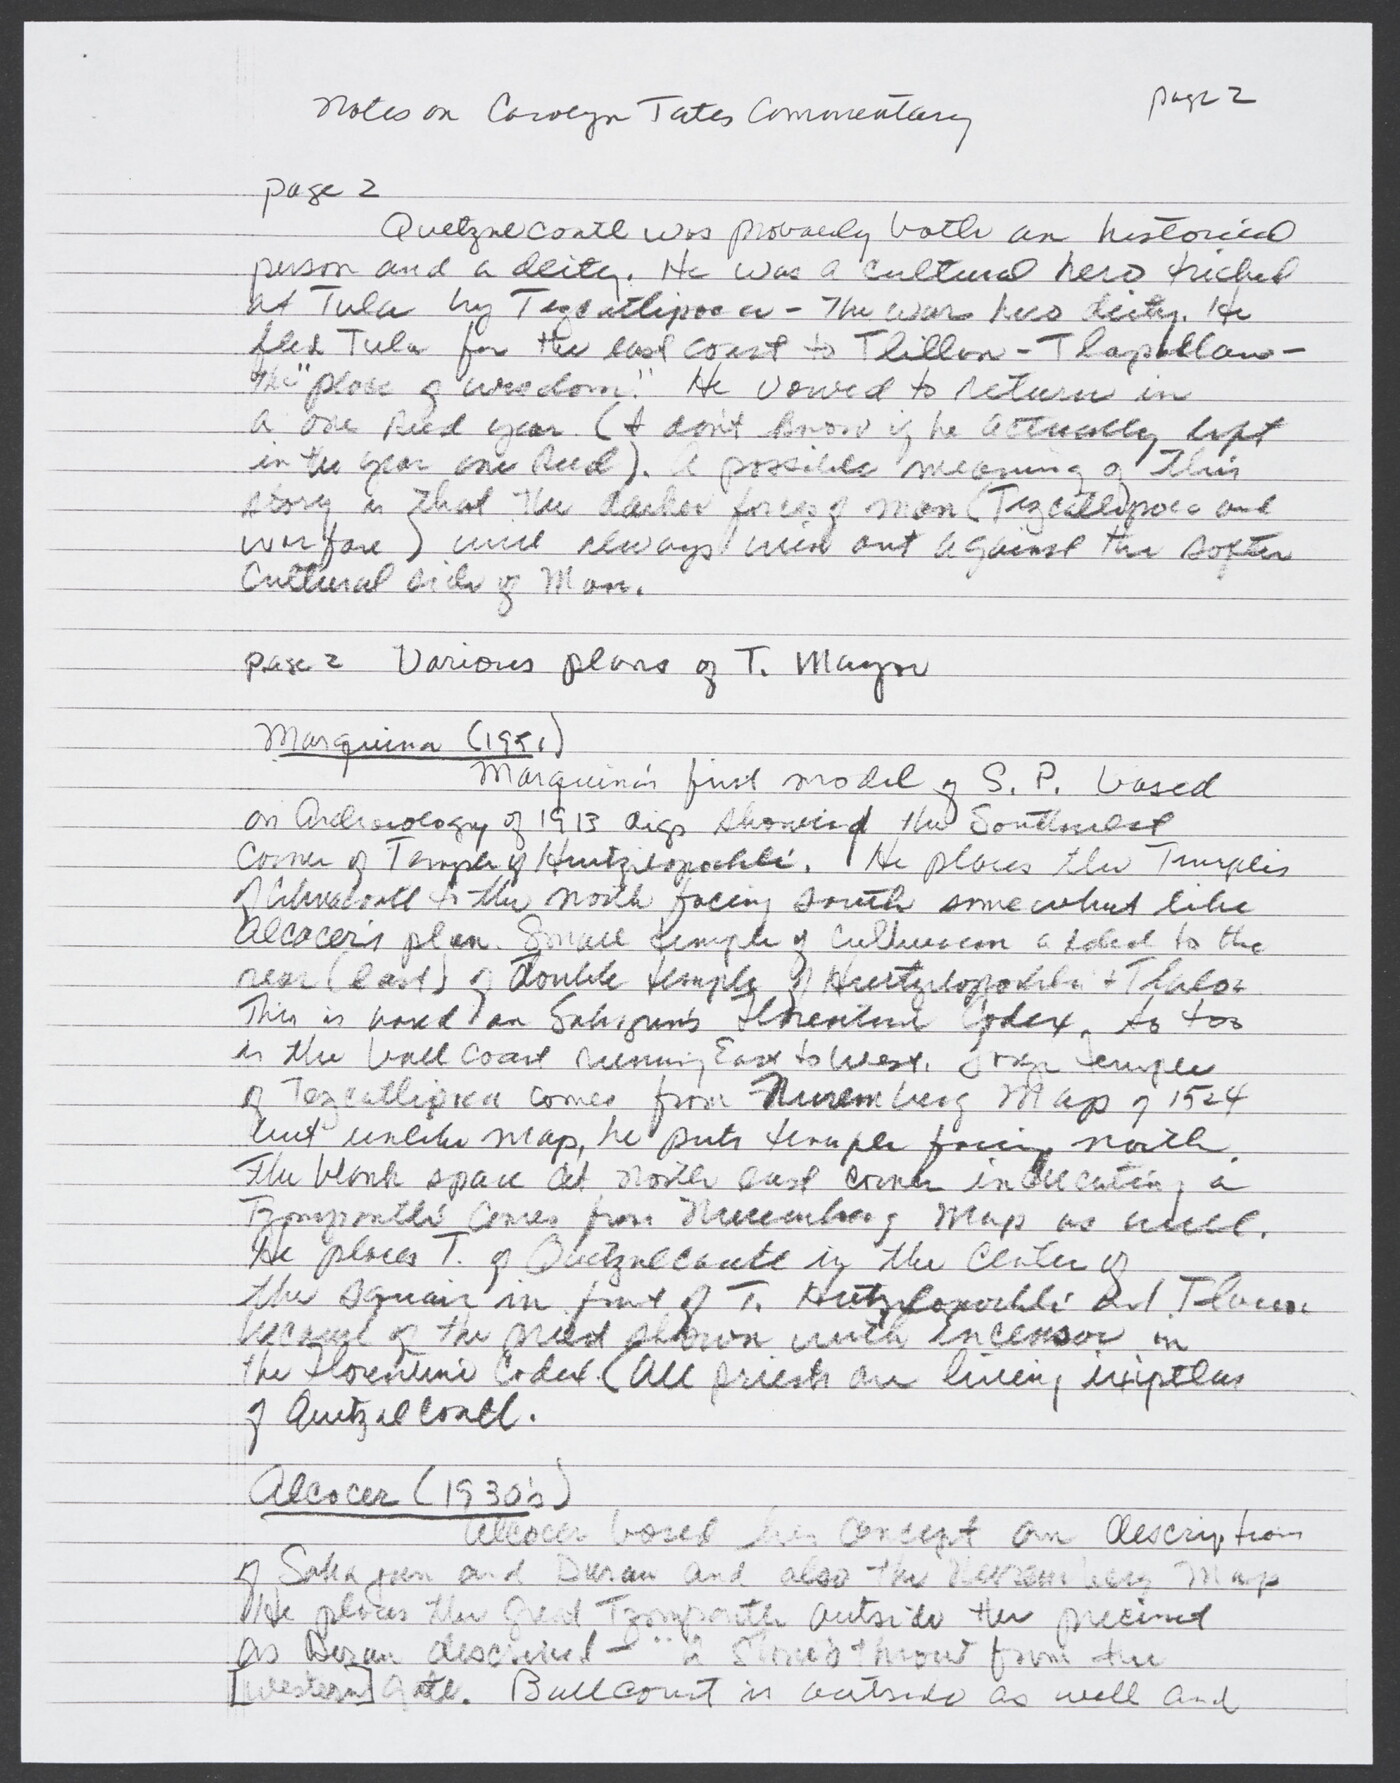 Notes on Carolyn Tates Commentary
page 2
page 2
Quetzalcoatl was probably both an historical
person and a deity. He was a cultural hero tricked
at Tula by Tezcatlipoca - The war hero deity. He
fled Tula for the east coast to Tlillan - Tlapallan -
the "place of wisdom." He vowed to return in
a one Reed year. (I don't know if he actually left
in the year one Reed). A possible meaning of this
story is that the darker forces of man (Tezcatlipoca and
warfare) will always win out against the softer
Cultural side of Man.
page 2 Various plans of T. Mayor
Marquina (1951)
Marquina's first model of S. P. based
on Archaeology of 1913 digs showing the Southwest
corner of Temple of Huitzilopochtli. He places the Temples
of to the north facing south somewhat like
Alcocer's plan. Small temple of Culhuacan added to the
rear (east) of double temple of Huitzilopochtli + Tlaloc
This is based on Sahagun's Florentine Codex. So too
is the ball court running East to West. Temple
of Tezcatlipoca comes from Nuremberg Map of 1524
but unlike map, he puts temple facing north.
The blank space at north east corner indicating a
Tzompantli comes from Nuremberg Map as well.
He places T. of Quetzalcoatl in the Center of
the square in front of T. Huitzilopochtli and Tlaloc
because of the priest shown with incensor in
the Florentine Codex. (All priests are living ixiptlas
of Quetzalcoatl.
Alcocer (1930's)
Alcocer based his concept on descriptions
of Sahagun and Duran and also the Nuremberg Map
He places the Great Tzompantli outside the precinct
as Duran described - "a stone's throw from the
[western] gate. Ballcourt is outside as well and